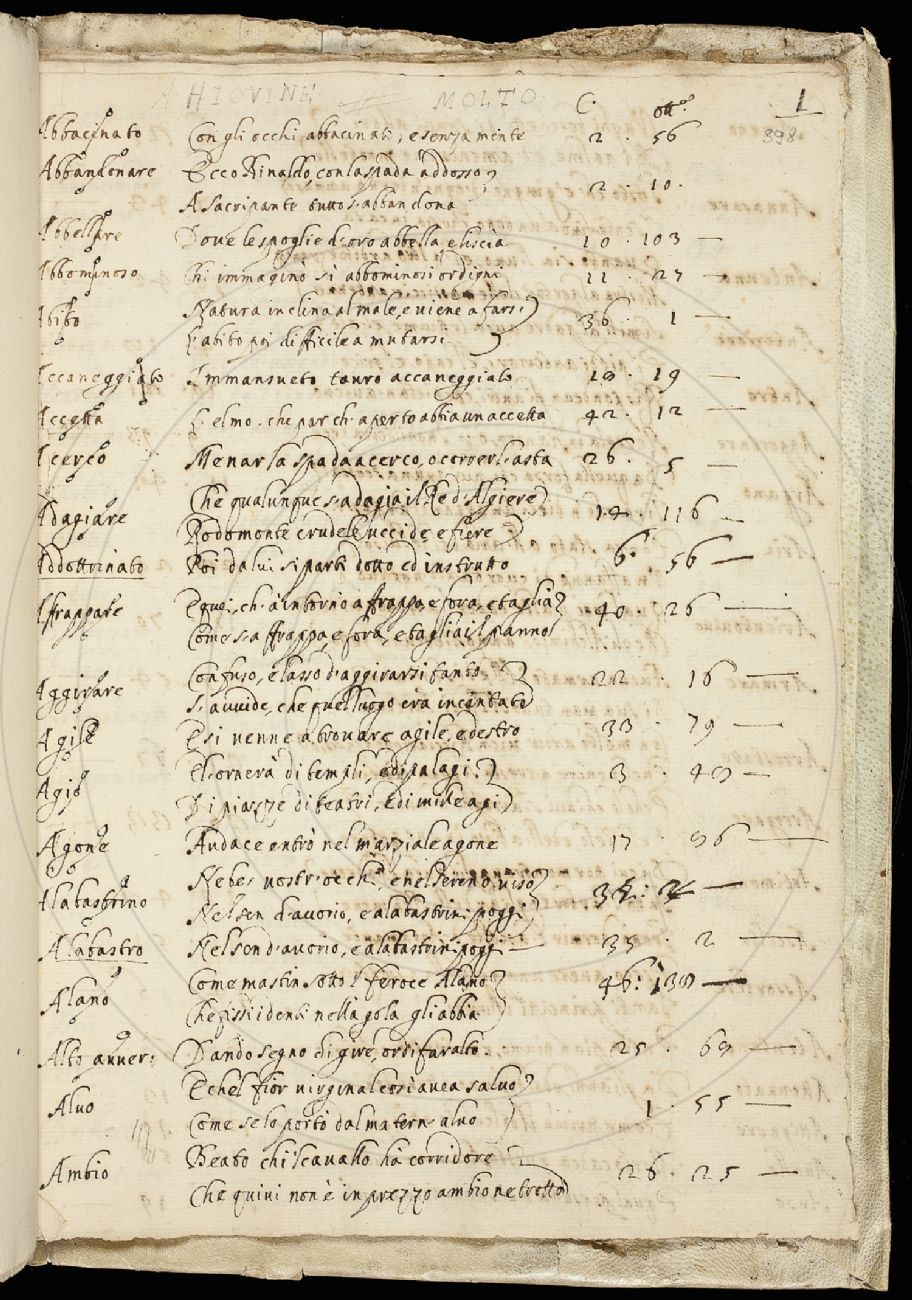 A HIOVINE MOLTO
C. ott.ᵉ 1
398
Abbacinato Con gli occhi abbacinati, e senza mente 2 · 56
Abbandonare Ecco Rinaldo, con la spada addosso
A Sacripante tutto s'abbandona 2 · 10.
Abbellire Dove le spoglie d'oro abbella, e liscia 10 · 103 —
Abbominoso Chi immaginò sì abbominosi ordigni 11 · 27 —
Abito Natura inclina al male, e viene a farsi
L'abito poi difficile a mutarsi 36 · 1 —
Accaneggiato Immansueto tauro accaneggiato 18 · 19 —
Accetta L'elmo. che par ch'aperto abbia una accetta 42 · 12 —
A cerco Menar la spada a cerco, o correr l'asta 26 · 5 —
Che qualunque s'adagia il Re d'Algiere
Adagiare Rodomonte crudele uccide, e fiere 14 · 116 —
Addottrinato Poi da lui si partì dotto ed instrutto 6 · 56 —
Affrappare E quei, ch'à intorno affrappa, e fora, e taglia
Come s'affrappa, e fora, e taglia il panno 40 · 26 —
Confuso, e lasso d'aggirarsi tanto
Aggirare S'avvide, che quel luogo era incantato 22 · 16 —
Agile E si venne a trovare agile, e destro 33 · 79 —
El'ornerà di templi, e di palagi 3 · 48 —
Agio Di piazze di teatri, e di mille agi
Agone Audace entrò nel marziale agone 17 · 86 —
Ne bei vostr'occhi, e nel sereno viso
Alabastrino Nel sen d'avorio, e alabastrini poggi
Alabastro Nel sen d'avorio, e alabastrini poggi — 35 · 2 —
Alano Come mastin sotto 'l feroce Alano
Che fissi i denti nella gola gli abbia 46 : 138 —
Alto avver: Dando segno di gire, or di far alto. 25 · 69 —
E che 'l fior virginal così avea salvo
Alvo Come se lo portò dal matern'alvo 1 · 55 —
Ambio Beato chi 'l cavallo ha corridore
Che quivi non è in prezzo ambio ne trotto 26 · 25 —